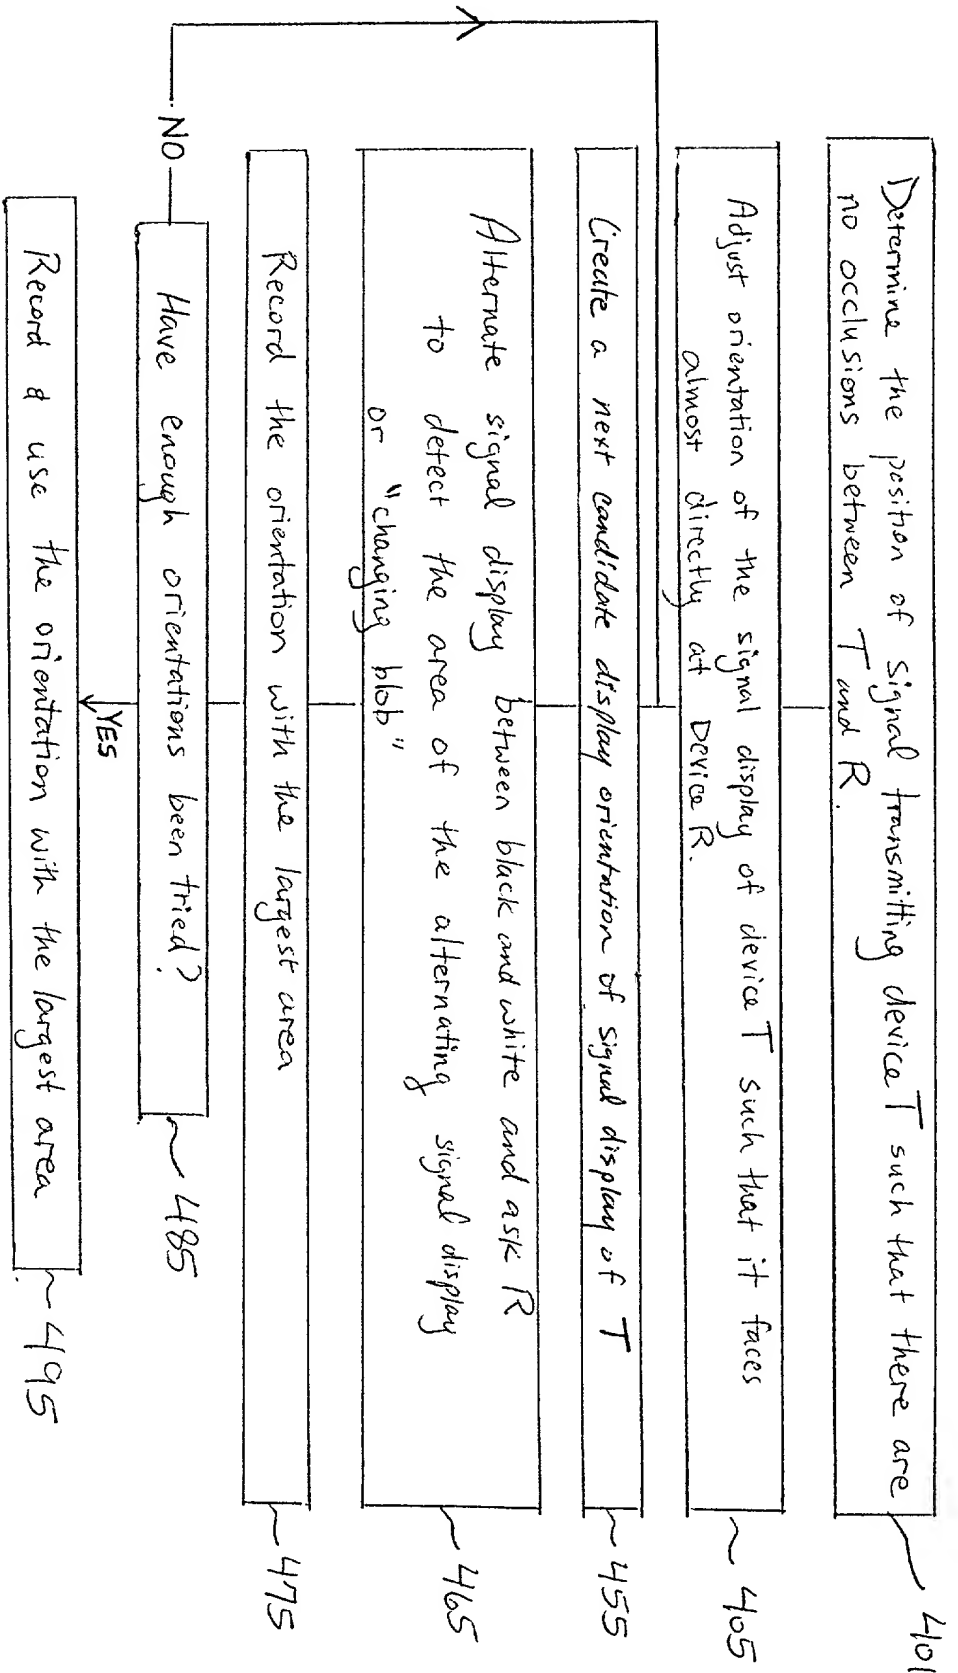 Determine the position of signal transmitting device T such that there are
no occlusions between T and R.
401
Adjust orientation of the signal display of device T such that it faces
almost directly at Device R.
405
Create a next candidate display orientation of signal display of T
455
Alternate signal display between black and white and ask R
to detect the area of the alternating signal display
or "changing blob"
465
Record the orientation with the largest area
475
NO
Have enough orientations been tried?
485
YES
Record & use the orientation with the largest area
495